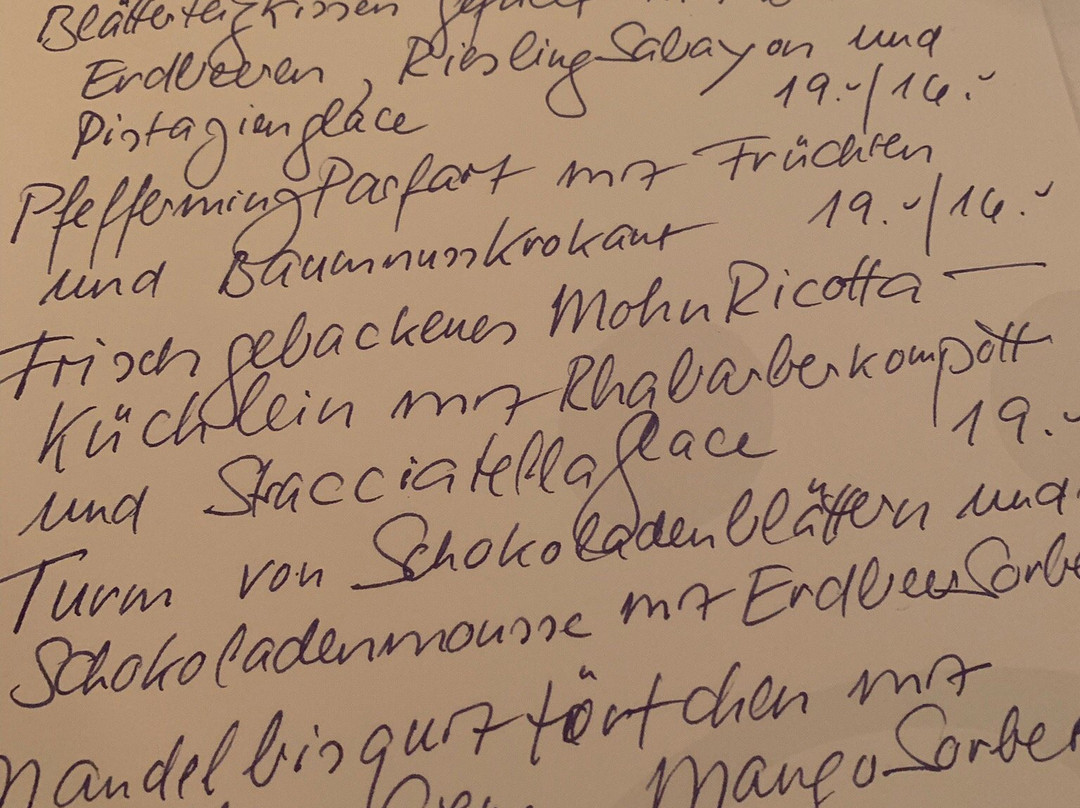 Blätterteigkissen gefüllt
Erdbeeren, RieslingSabayon und
Pistazienglace 19.-/16.-
PfeffermingParfait mit Früchten
und Baumnusskrokant 19.-/16.-
Frisch gebackenes MohnRicotta-
Küchlein mit Rhabarberkompott
und Stracciatellaglace 19.-
Turm von Schokoladenblättern und
Schokoladenmousse mit ErdbeerSorbe
Mandelbisquit törtchen mit
MangoSorbe